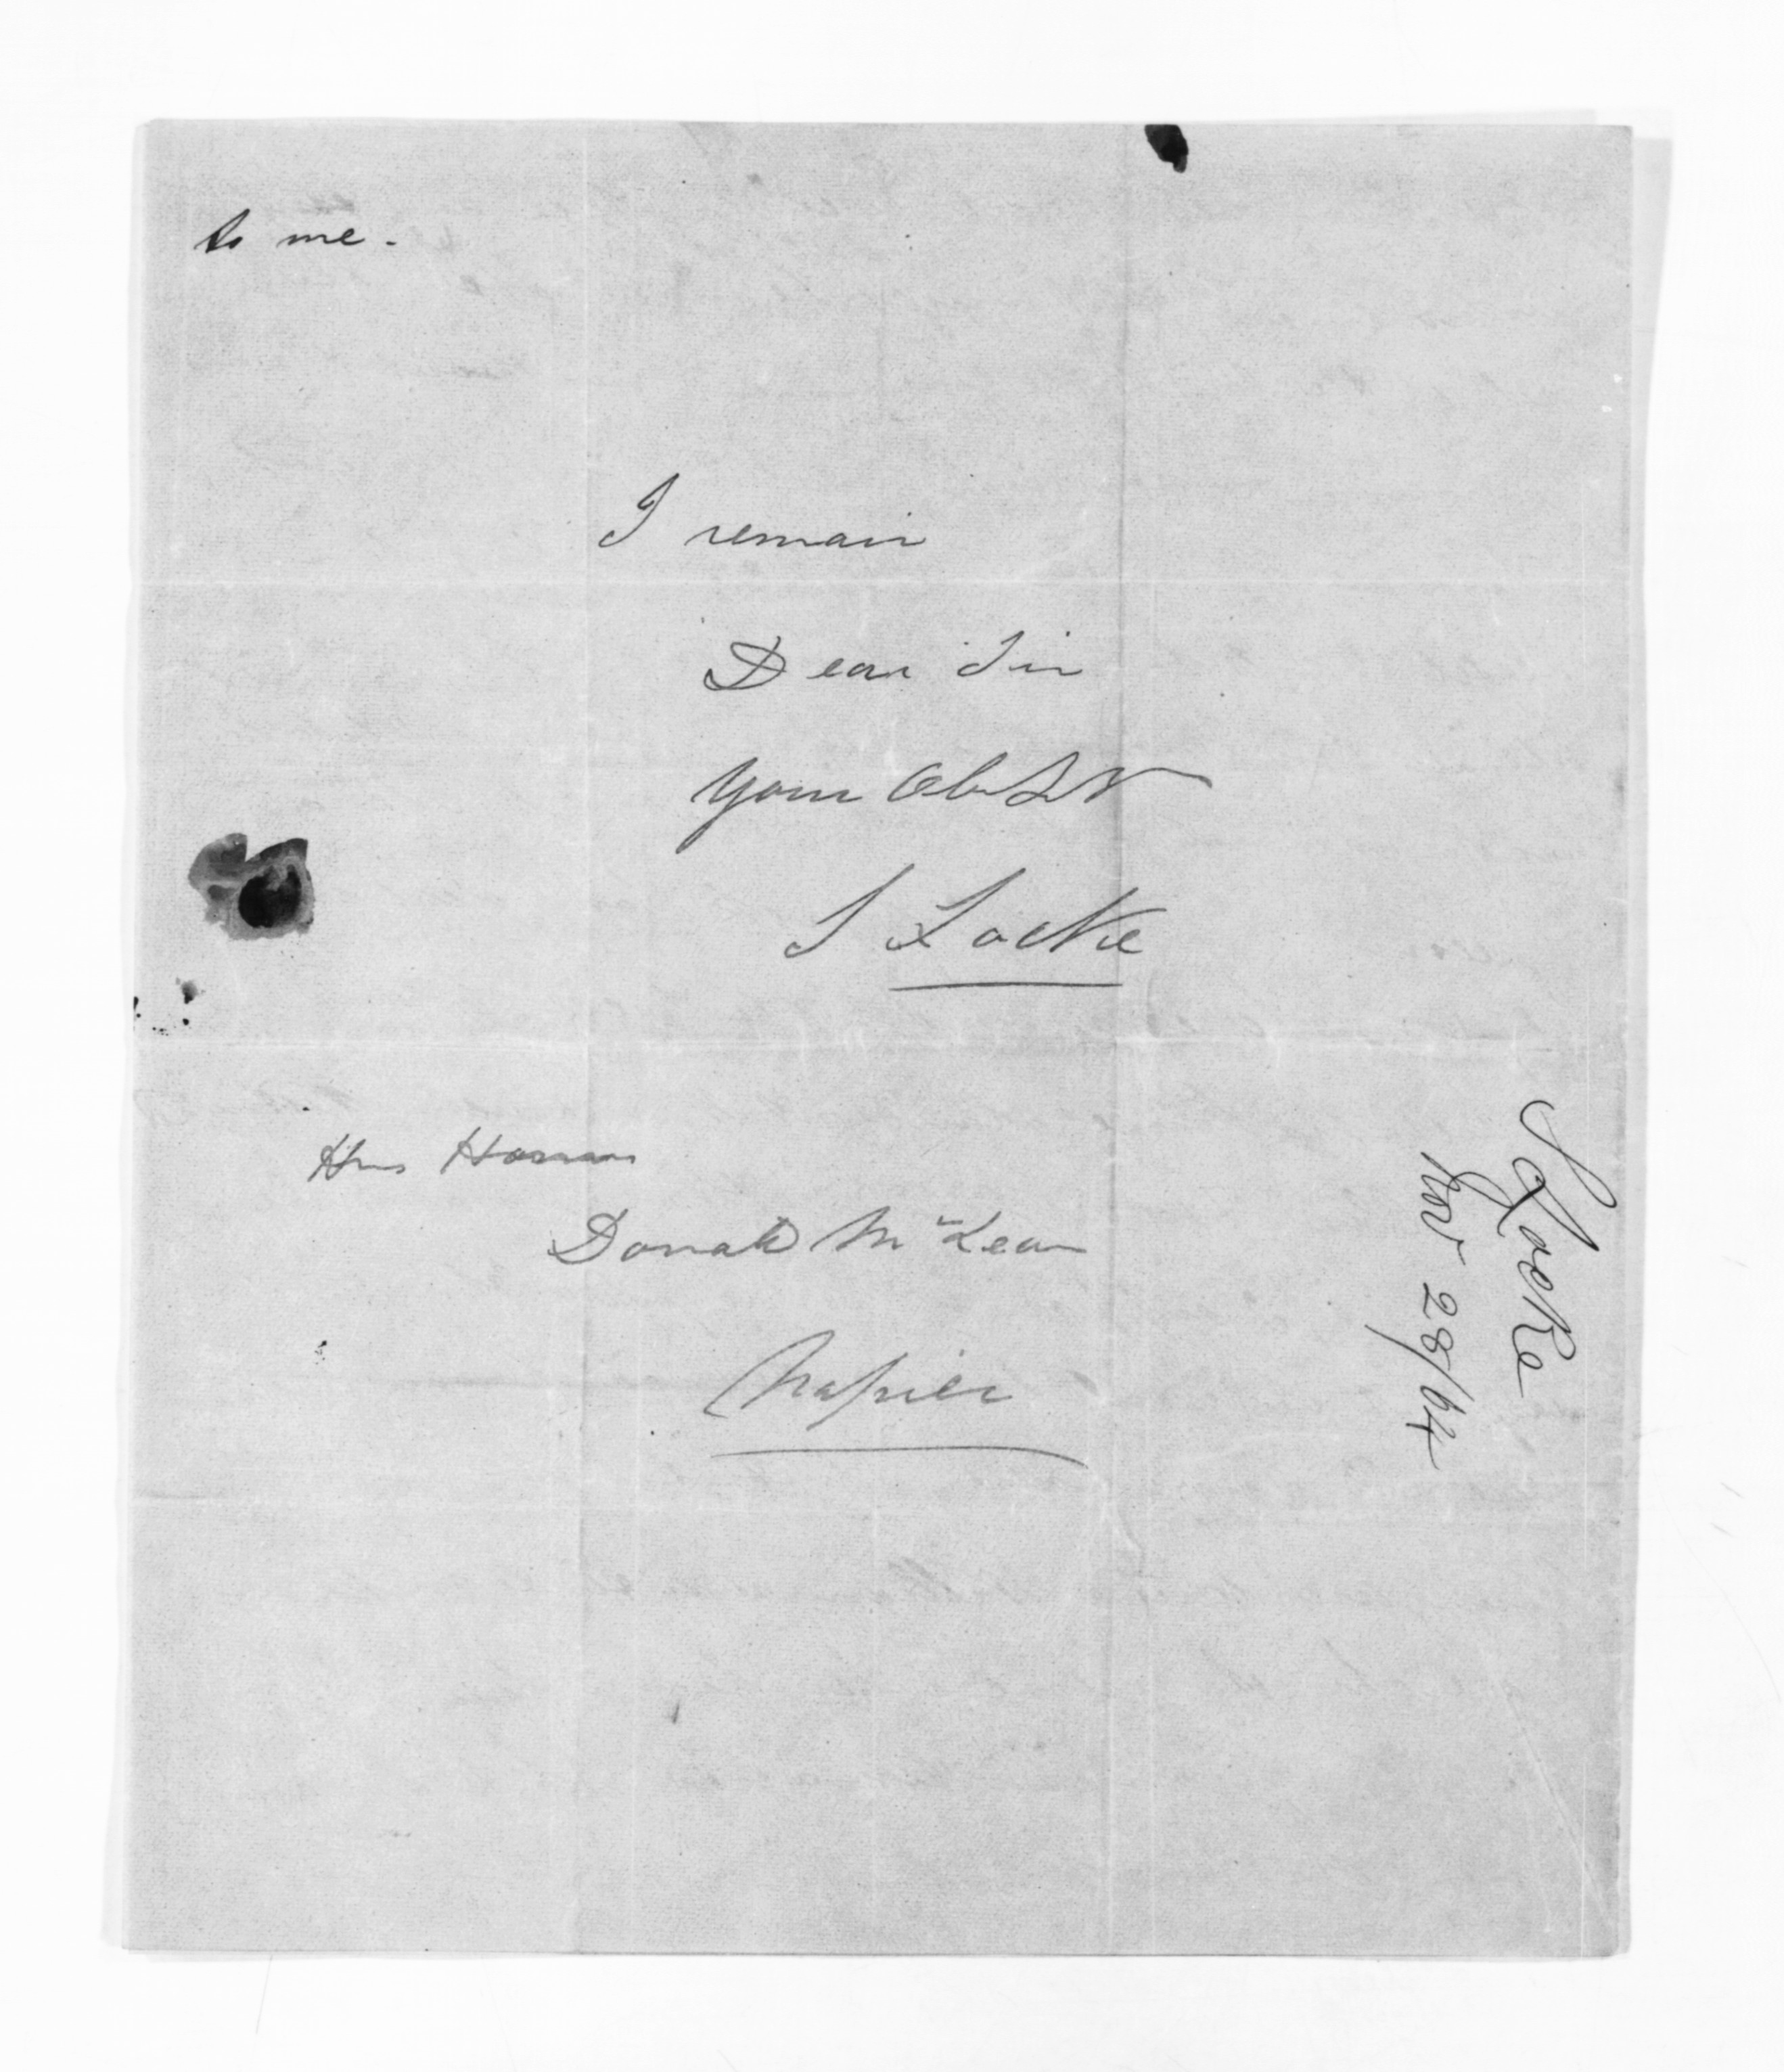 to me.
I remain
Dear Sir
Your Obt St
S Locke
His Honor
Donald McLean
Napier
S Locke
Nov 28/64